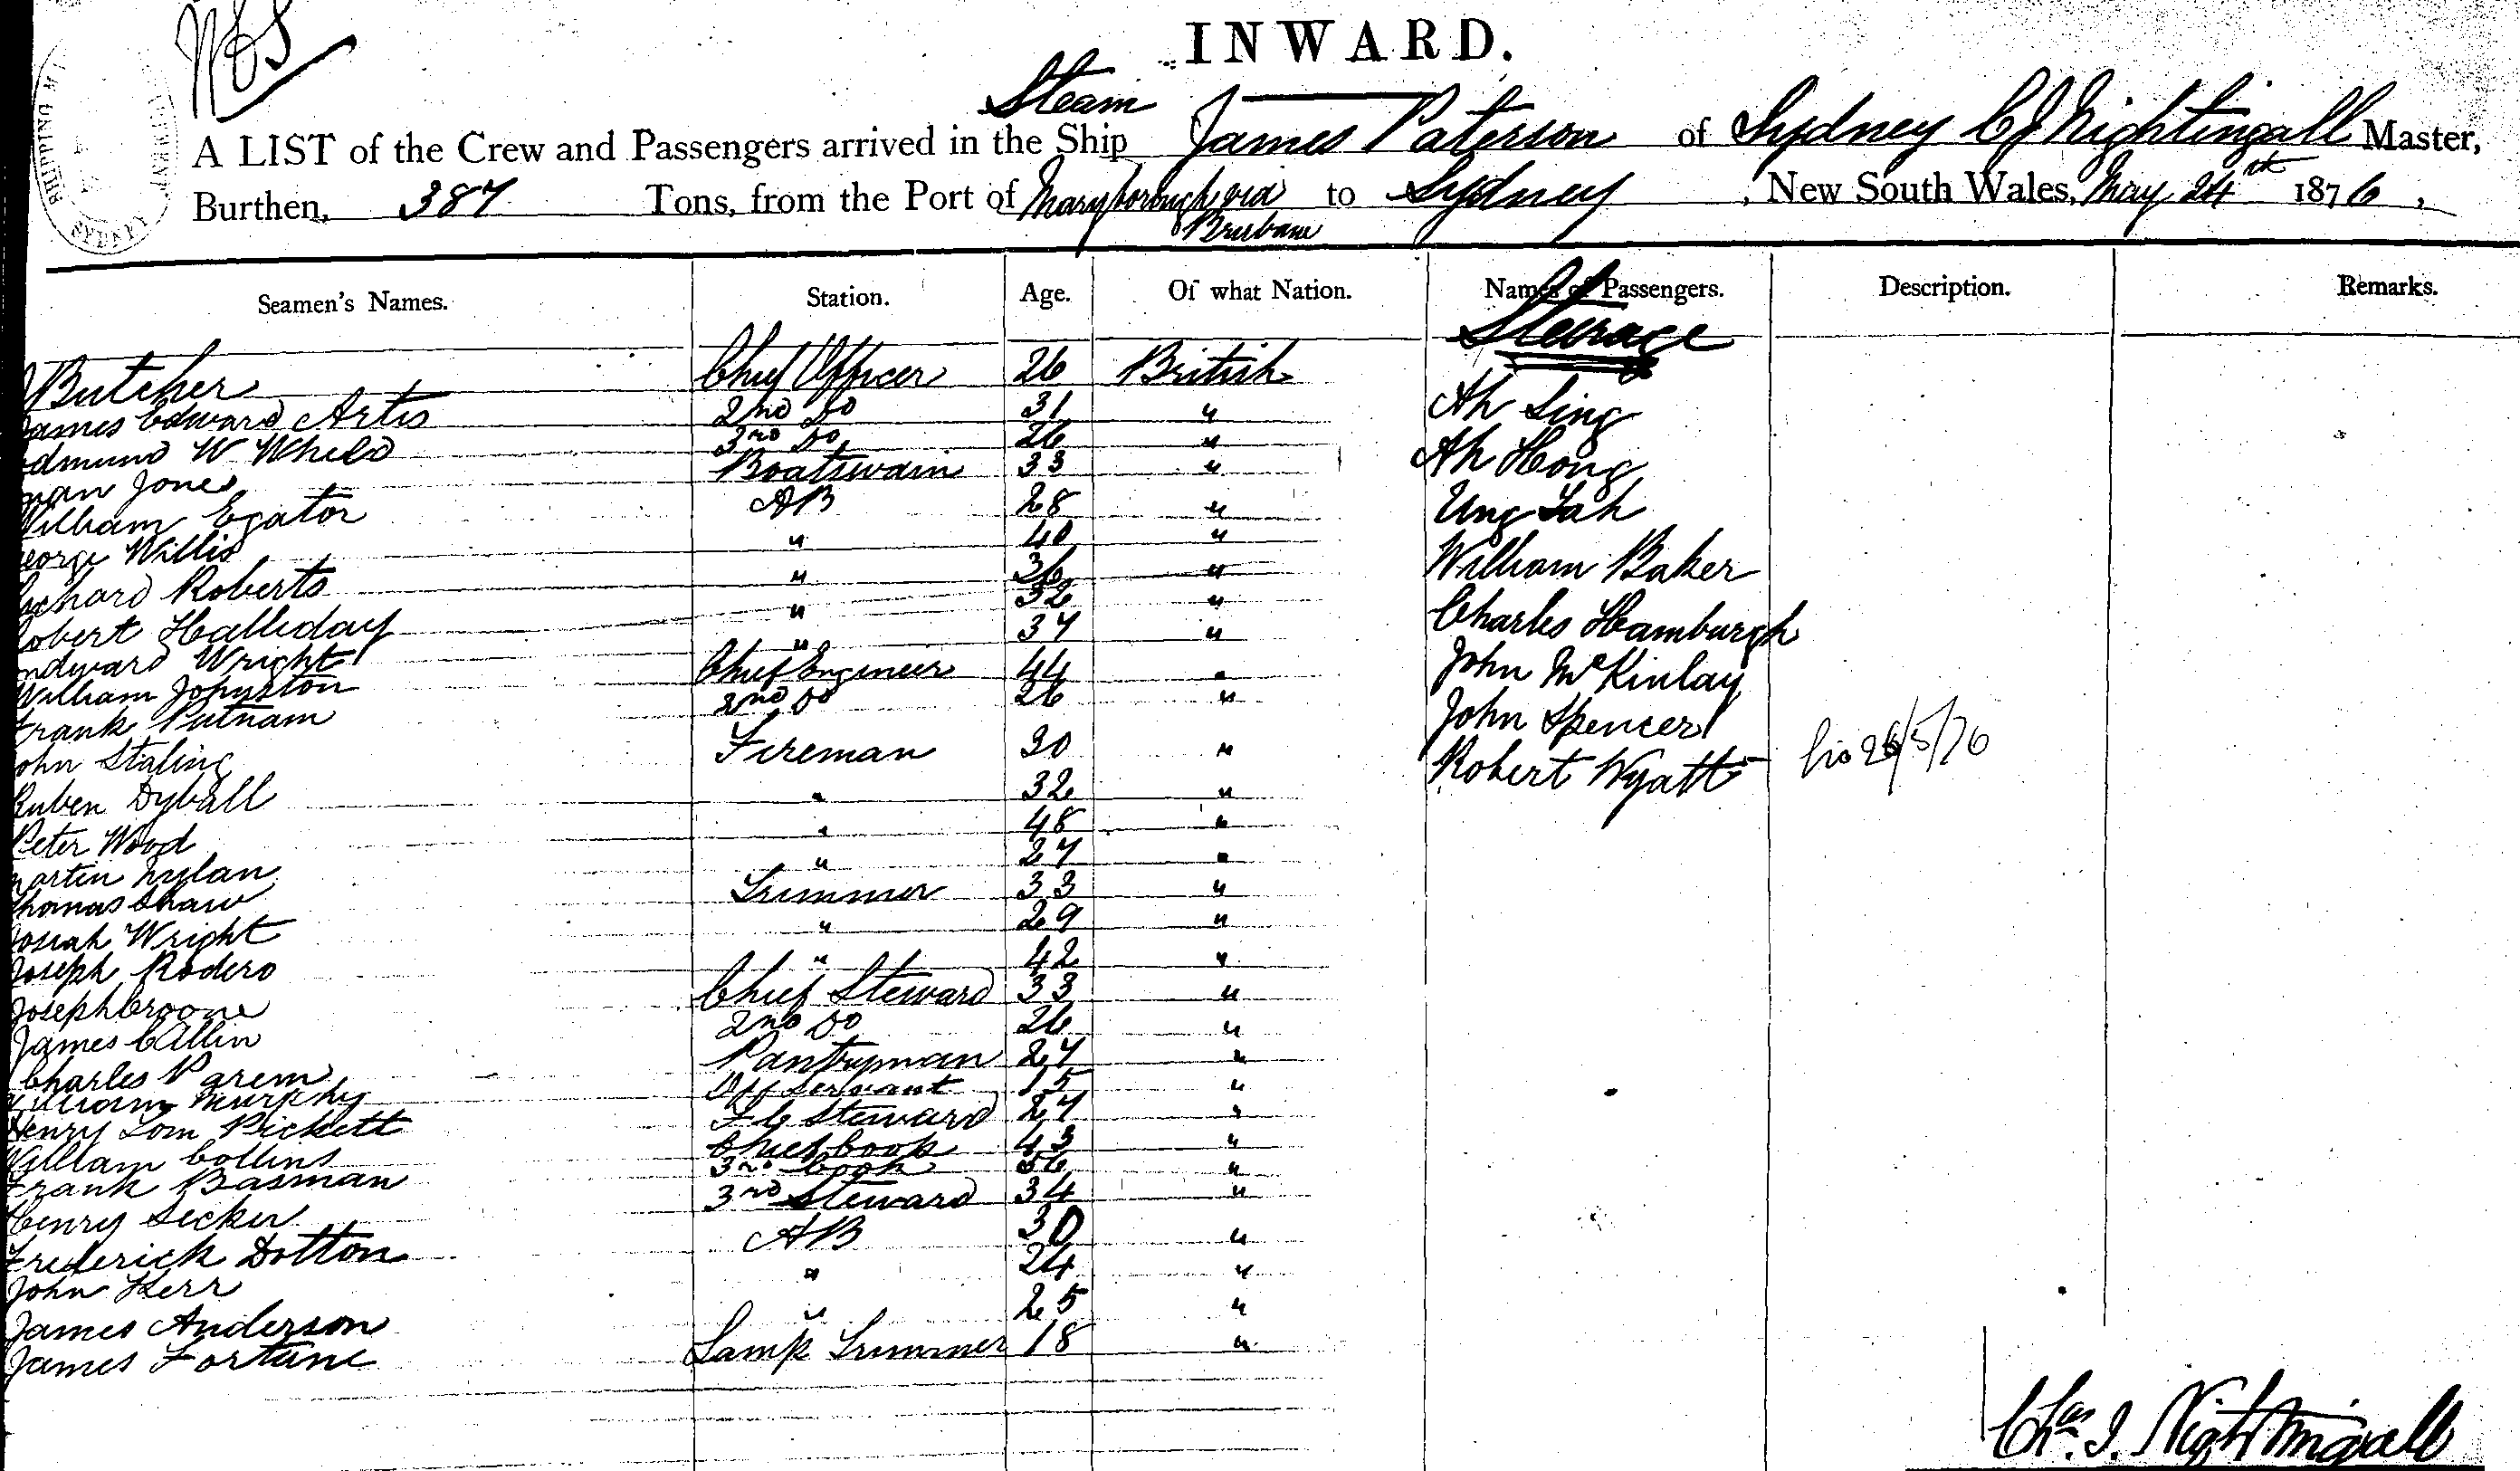 INWARD.
Steam
A LIST of the Crew and Passengers arrived in the Ship James Paterson of Sydney C J Nightingall Master,
Burthen, 387 Tons, from the Port of Maryborough via to Sydney, New South Wales, May 24th 1876,
Brisbane
Seamen's Names. Station. Age. Of what Nation. Names of Passengers. Description. Remarks.
Steerage
Butcher Chief Officer 26 British
James Edward Artis 2nd Do 31 " Ah Sing
Edmund W Wheld 3rd Do 26 "
Jones Boatswain 33 " Ah Hong
William Egator AB 28 " Ung Lah
George Willis " 40 "
Richard Roberts " 36 " William Baker
Robert Halliday " 32 " Charles Hamburgh
Wright " 37 "
William Johnston Chief Engineer 44 " John McKinlay
Frank Putnam 2nd Do 26 " John Spencer
John Staling Fireman 30 " Robert Wyatt 26/5/76
Ruben Dyball " 32 "
Peter Wood " 48 "
Martin Nylan " 27 "
Thomas Shaw Trimmer 33 "
Josiah Wright " 29 "
Joseph Rodero " 42 "
Joseph Croone Chief Steward 33 "
James C Allin 2nd Do 26 "
Charles Parem Pantryman 27 "
William Murphy Off Servant 15 "
Henry Tom Pickett F C Steward 27 "
William Collins Chief Cook 43 "
Frank Basman 3rd Cook 56 "
Henry Secker 3rd Steward 34 "
Frederick Dotton AB 30 "
John Kerr " 24 "
James Anderson " 25 "
James Fortune Lamp Trimmer 18 "
Chas. J. Nightingall